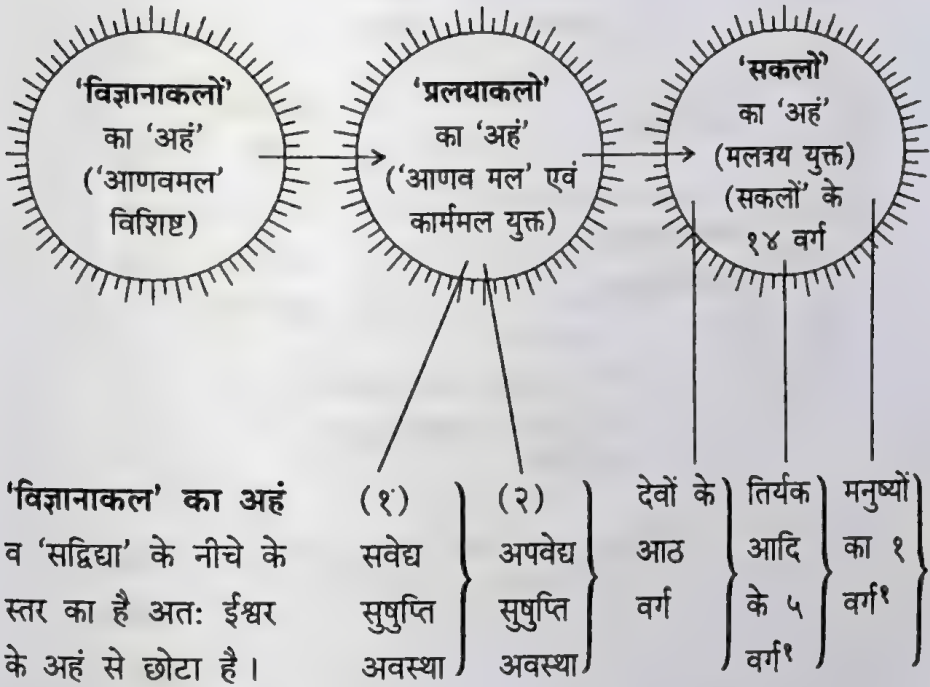 'विज्ञानाकलों'
का 'अहं'
('आणवमल'
विशिष्ट)
'प्रलयाकलो'
का 'अहं'
('आणव मल' एवं
कार्ममल युक्त)
'सकलों'
का 'अहं'
(मलत्रय युक्त)
(सकलों' के
१४ वर्ग
'विज्ञानाकल' का अहं
व 'सद्विद्या' के नीचे के
स्तर का है अतः ईश्वर
के अहं से छोटा है।
(१)
सवेद्य
सुषुप्ति
अवस्था
(२)
अपवेद्य
सुषुप्ति
अवस्था
देवों के
आठ
वर्ग
तिर्यक
आदि
के ५
वर्ग१
मनुष्यों
का १
वर्ग१